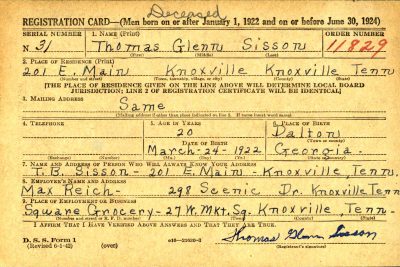 Deceased
REGISTRATION CARD—(Men born on or after January 1, 1922 and on or before June 30, 1924)
SERIAL NUMBER 1. NAME (Print) ORDER NUMBER
N 31 Thomas Glenn Sisson 11829
(First) (Middle) (Last)
2. PLACE OF RESIDENCE (Print)
201 E. Main Knoxville Knoxville Tenn
(Number and street) (Town, township, village, or city) (County) (State)
[THE PLACE OF RESIDENCE GIVEN ON THE LINE ABOVE WILL DETERMINE LOCAL BOARD
JURISDICTION; LINE 2 OF REGISTRATION CERTIFICATE WILL BE IDENTICAL]
3. MAILING ADDRESS
Same
[Mailing address if other than place indicated on line 2. If same insert word same]
4. TELEPHONE 5. AGE IN YEARS 6. PLACE OF BIRTH
20 Dalton
DATE OF BIRTH (Town or county)
March-24-1922 Georgia.
(Exchange) (Number) (Mo.) (Day) (Yr.) (State or country)
7. NAME AND ADDRESS OF PERSON WHO WILL ALWAYS KNOW YOUR ADDRESS
T.B. Sisson-201 E. Main-Knoxville, Tenn.
8. EMPLOYER'S NAME AND ADDRESS
Max Reich- 298 Scenic Dr. Knoxville Tenn
9. PLACE OF EMPLOYMENT OR BUSINESS
Square Grocery-27 W. Mkt. Sq. Knoxville, Tenn-
(Number and street or R. F. D. number) (Town) (County) (State)
I AFFIRM THAT I HAVE VERIFIED ABOVE ANSWERS AND THAT THEY ARE TRUE.
D. S. S. Form 1
(Revised 6-1-42) (over) Thomas Glenn Sisson
(Registrant's signature)